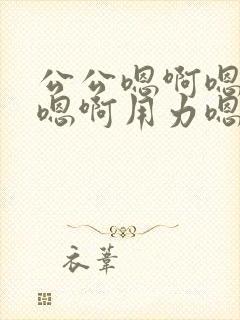 公公嗯啊嗯
嗯啊用力嗯
衣苇